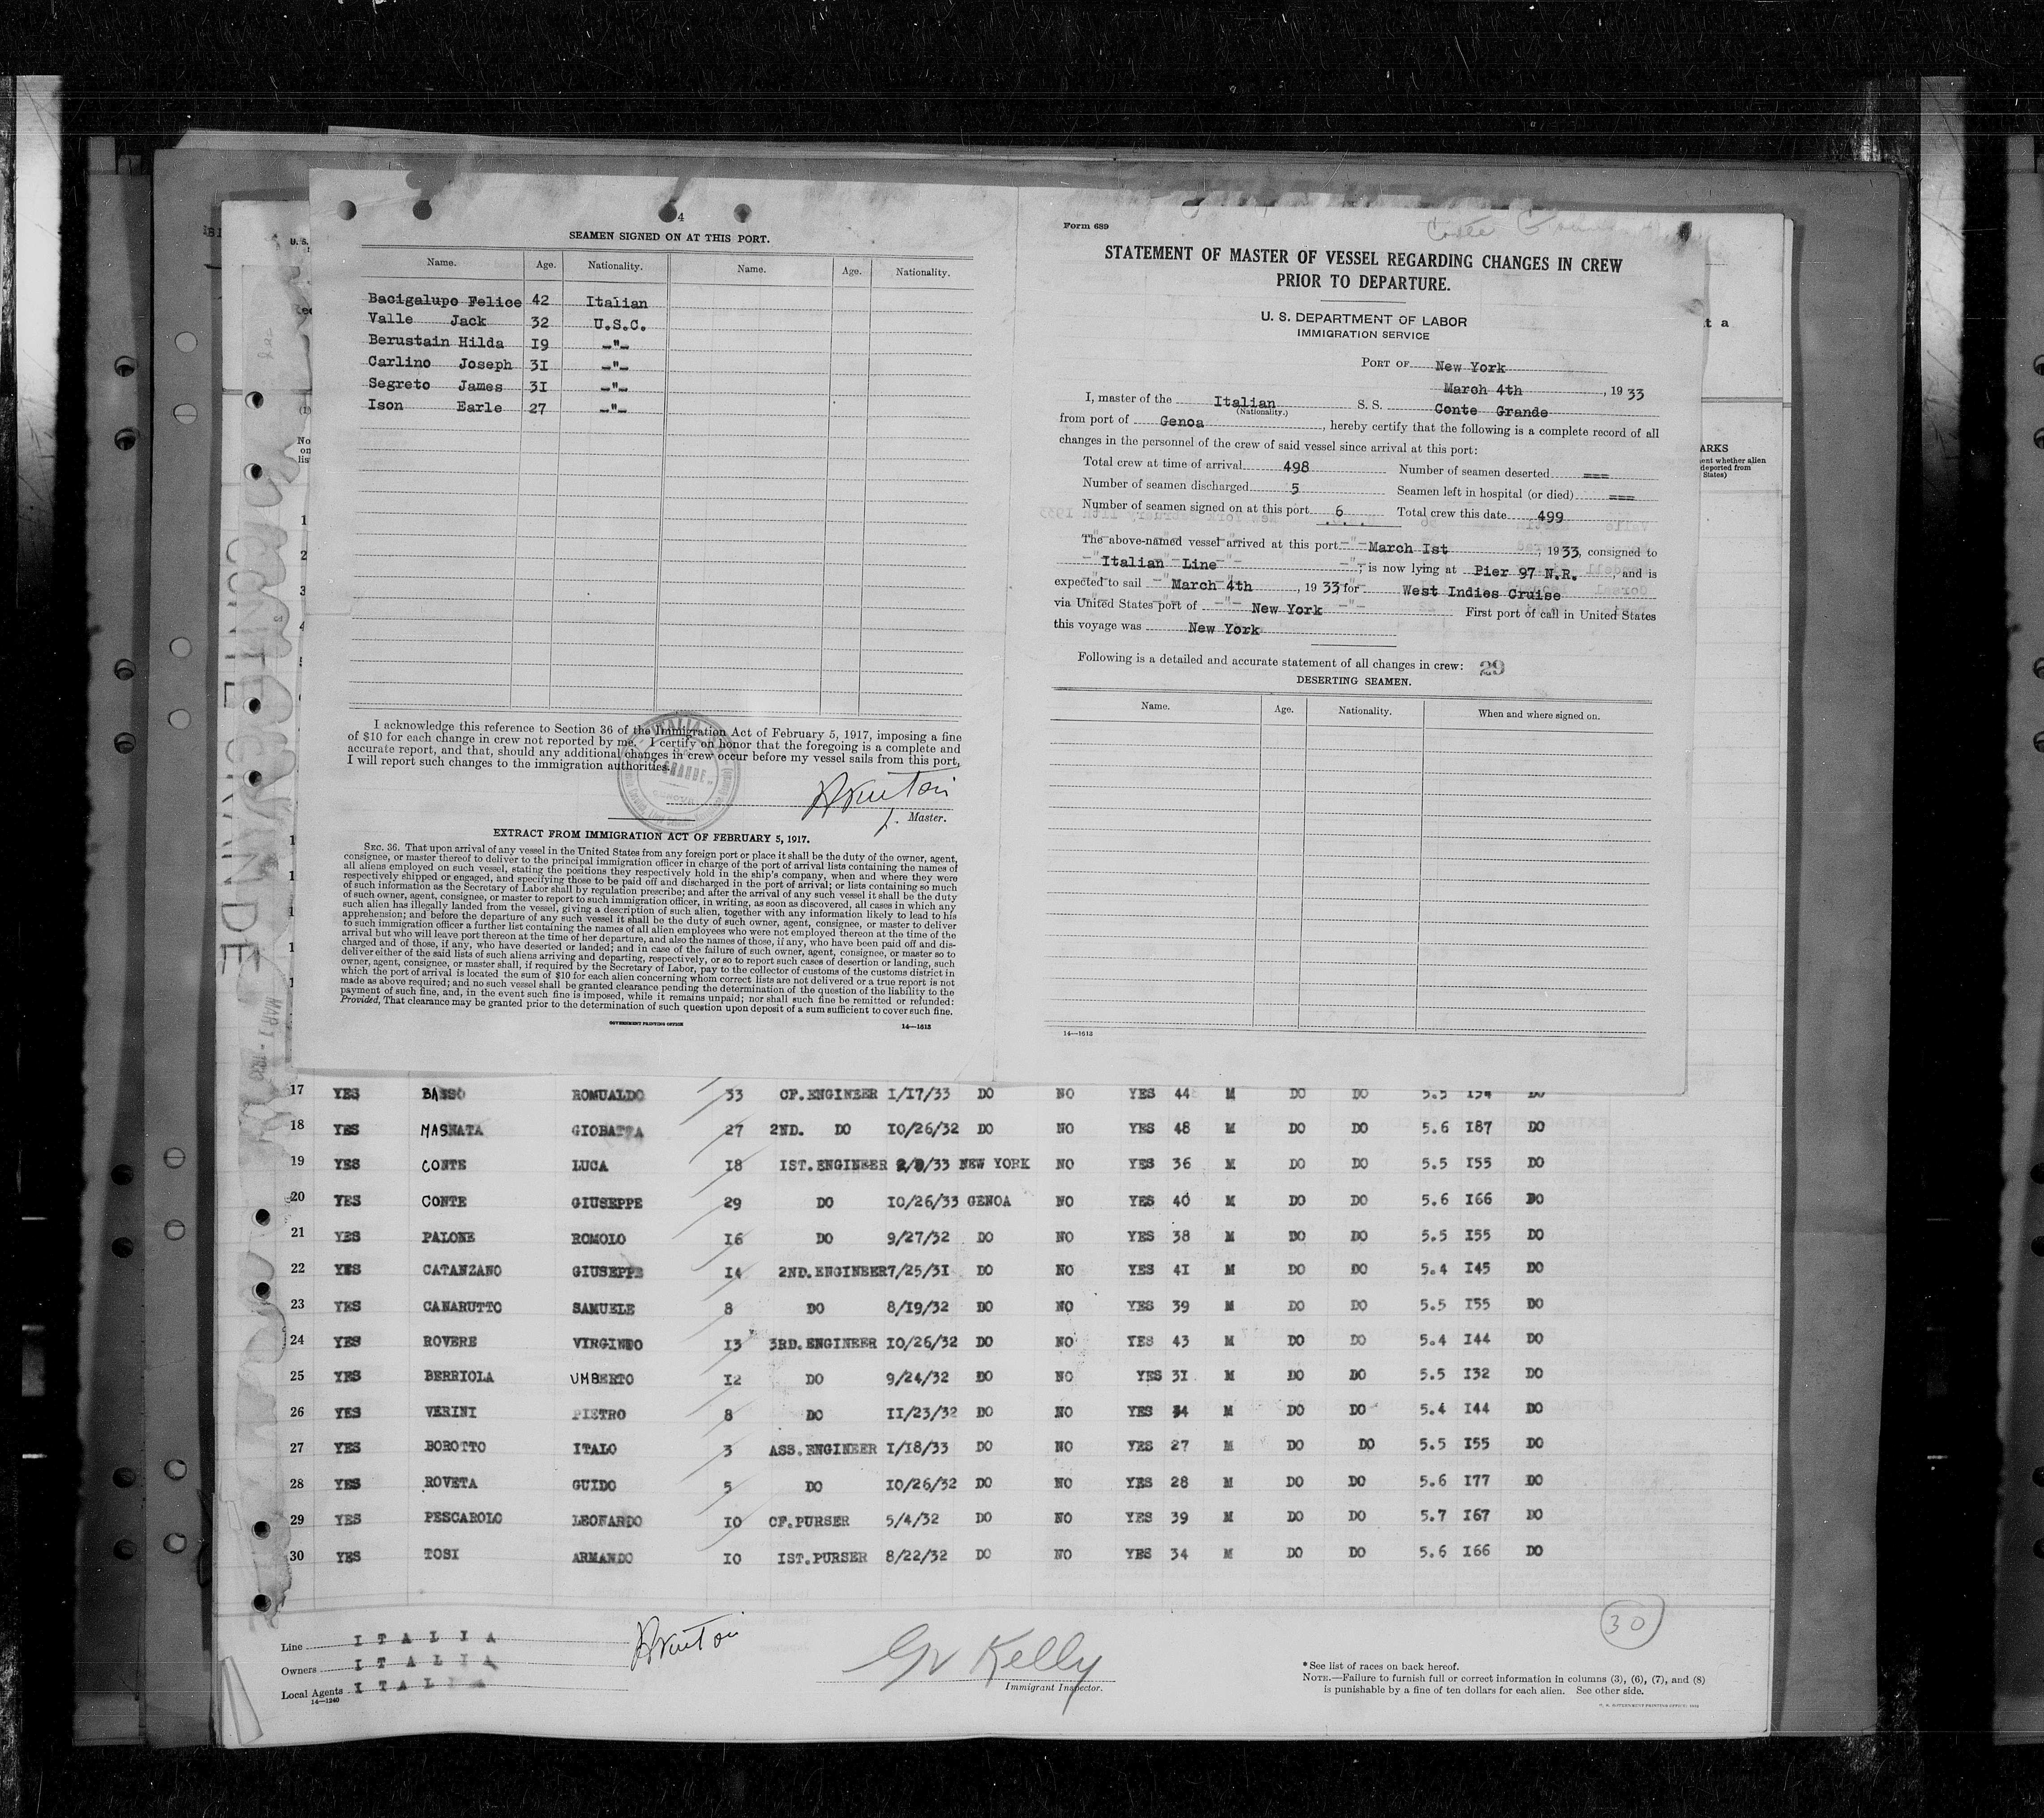 4
SEAMEN SIGNED ON AT THIS PORT.
Name. Age. Nationality. Name. Age. Nationality.
Bacigalupo Felice 42 Italian
Valle Jack 32 U.S.C.
Berustain Hilda I9 -"-
Carlino Joseph 3I -"-
Segreto James 3I -"-
Ison Earle 27 -"-
I acknowledge this reference to Section 36 of the Immigration Act of February 5, 1917, imposing a fine
of $10 for each change in crew not reported by me. I certify on honor that the foregoing is a complete and
accurate report, and that, should any additional changes in crew occur before my vessel sails from this port,
I will report such changes to the immigration authorities.
Master.
EXTRACT FROM IMMIGRATION ACT OF FEBRUARY 5, 1917.
SEC. 36. That upon arrival of any vessel in the United States from any foreign port or place it shall be the duty of the owner, agent,
consignee, or master thereof to deliver to the principal immigration officer in charge of the port of arrival lists containing the names of
all aliens employed on such vessel, stating the positions they respectively hold in the ship's company, when and where they were
respectively shipped or engaged, and specifying those to be paid off and discharged in the port of arrival; or lists containing so much
of such information as the Secretary of Labor shall by regulation prescribe; and after the arrival of any such vessel it shall be the duty
of such owner, agent, consignee, or master to report to such immigration officer, in writing, as soon as discovered, all cases in which any
such alien has illegally landed from the vessel, giving a description of such alien, together with any information likely to lead to his
apprehension; and before the departure of any such vessel it shall be the duty of such owner, agent, consignee, or master to deliver
to such immigration officer a further list containing the names of all alien employees who were not employed thereon at the time of the
arrival but who will leave port thereon at the time of her departure, and also the names of those, if any, who have been paid off and dis-
charged and of those, if any, who have deserted or landed; and in case of the failure of such owner, agent, consignee, or master so to
deliver either of the said lists of such aliens arriving and departing, respectively, or so to report such cases of desertion or landing, such
owner, agent, consignee, or master shall, if required by the Secretary of Labor, pay to the collector of customs of the customs district in
which the port of arrival is located the sum of $10 for each alien concerning whom correct lists are not delivered or a true report is not
made as above required; and no such vessel shall be granted clearance pending the determination of the question of the liability to the
payment of such fine, and, in the event such fine is imposed, while it remains unpaid; nor shall such fine be remitted or refunded:
Provided, That clearance may be granted prior to the determination of such question upon deposit of a sum sufficient to cover such fine.
GOVERNMENT PRINTING OFFICE 14—1613
Form 689
Conte Grande
STATEMENT OF MASTER OF VESSEL REGARDING CHANGES IN CREW
PRIOR TO DEPARTURE.
U. S. DEPARTMENT OF LABOR
IMMIGRATION SERVICE
PORT OF New York
March 4th, 1933
I, master of the Italian S. S. Conte Grande
(Nationality.)
from port of Genoa, hereby certify that the following is a complete record of all
changes in the personnel of the crew of said vessel since arrival at this port:
Total crew at time of arrival 498 Number of seamen deserted ===
Number of seamen discharged 5 Seamen left in hospital (or died) ===
Number of seamen signed on at this port 6 Total crew this date 499
The above-named vessel arrived at this port March Ist, 1933, consigned to
Italian Line, is now lying at Pier 97 N.R., and is
expected to sail March 4th, 1933 for West Indies Cruise
via United States port of New York First port of call in United States
this voyage was New York
Following is a detailed and accurate statement of all changes in crew: 29
DESERTING SEAMEN.
Name. Age. Nationality. When and where signed on.
14—1613
CONTE GRANDE
MAR 1 - 1933
17 YES BASSO ROMUALDO 33 CF.ENGINEER I/I7/33 DO NO YES 44 M DO DO 5.5 I54 DO
18 YES MASNATA GIOBATTA 27 2ND. DO IO/26/32 DO NO YES 48 M DO DO 5.6 I87 DO
19 YES CONTE LUCA I8 IST.ENGINEER 2/8/33 NEW YORK NO YES 36 M DO DO 5.5 I55 DO
20 YES CONTE GIUSEPPE 29 DO IO/26/33 GENOA NO YES 40 M DO DO 5.6 I66 DO
21 YES PALONE ROMOLO I6 DO 9/27/32 DO NO YES 38 M DO DO 5.5 I55 DO
22 YES CATANZANO GIUSEPPE I4 2ND.ENGINEER 7/25/3I DO NO YES 4I M DO DO 5.4 I45 DO
23 YES CANARUTTO SAMUELE 8 DO 8/I9/32 DO NO YES 39 M DO DO 5.5 I55 DO
24 YES ROVERE VIRGINIO I3 3RD.ENGINEER IO/26/32 DO NO YES 43 M DO DO 5.4 I44 DO
25 YES BERRIOLA UMBERTO I2 DO 9/24/32 DO NO YES 3I M DO DO 5.5 I32 DO
26 YES VERINI PIETRO 8 DO II/23/32 DO NO YES 34 M DO DO 5.4 I44 DO
27 YES BOROTTO ITALO 3 ASS.ENGINEER I/I8/33 DO NO YES 27 M DO DO 5.5 I55 DO
28 YES ROVETA GUIDO 5 DO IO/26/32 DO NO YES 28 M DO DO 5.6 I77 DO
29 YES PESCAROLO LEONARDO IO CF.PURSER 5/4/32 DO NO YES 39 M DO DO 5.7 I67 DO
30 YES TOSI ARMANDO IO IST.PURSER 8/22/32 DO NO YES 34 M DO DO 5.6 I66 DO
30
Line I T A L I A
Owners I T A L I A
Local Agents I T A L I A
14—1240
Gv Kelly
Immigrant Inspector.
* See list of races on back hereof.
NOTE.—Failure to furnish full or correct information in columns (3), (6), (7), and (8)
is punishable by a fine of ten dollars for each alien. See other side.